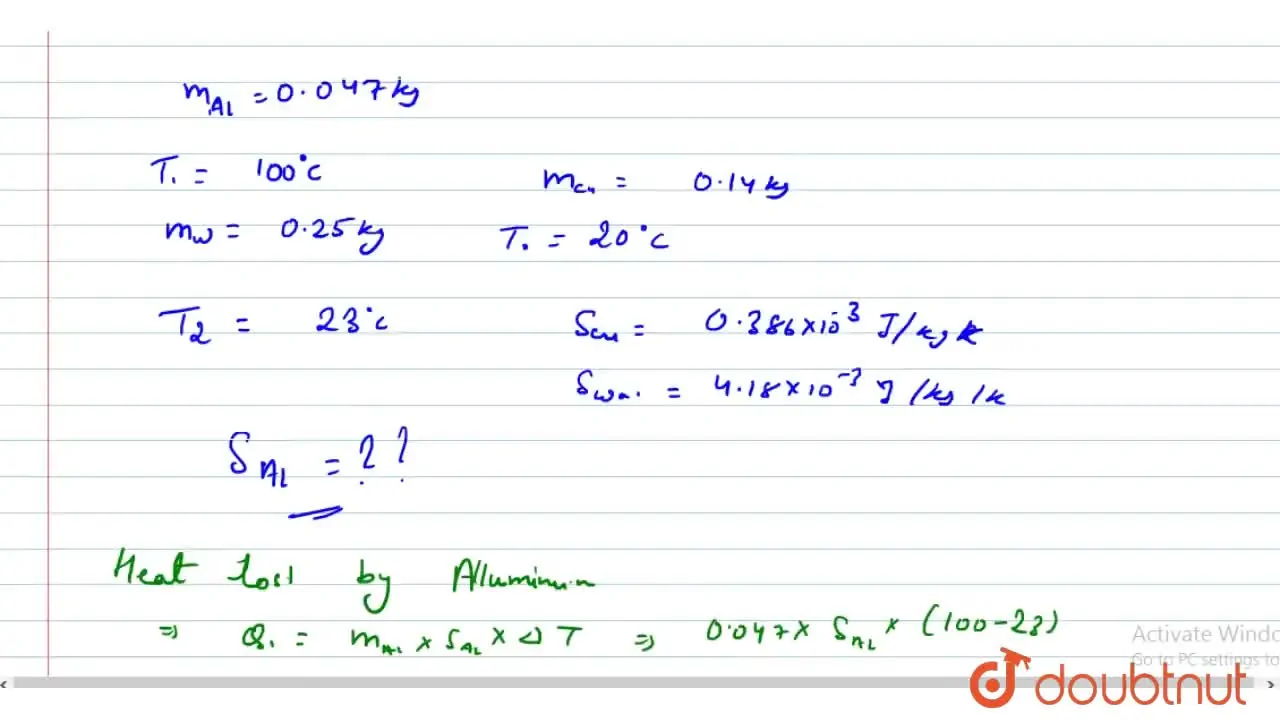 m_Al = 0.047 kg
T₁ = 100°C
m_cu = 0.14 kg
m_w = 0.25 kg
T₁ = 20°C
T₂ = 23°C
S_cu = 0.386×10⁻³ J/kg K
S_wa. = 4.18×10⁻³ J/kg/K
S_Al = ??
Heat lost by Alluminum
⇒ Q₁ = m_Al × S_AL × Δ T ⇒ 0.047 × S_AL × (100-23)
Activate Windo
Go to PC settings to
doubtnut